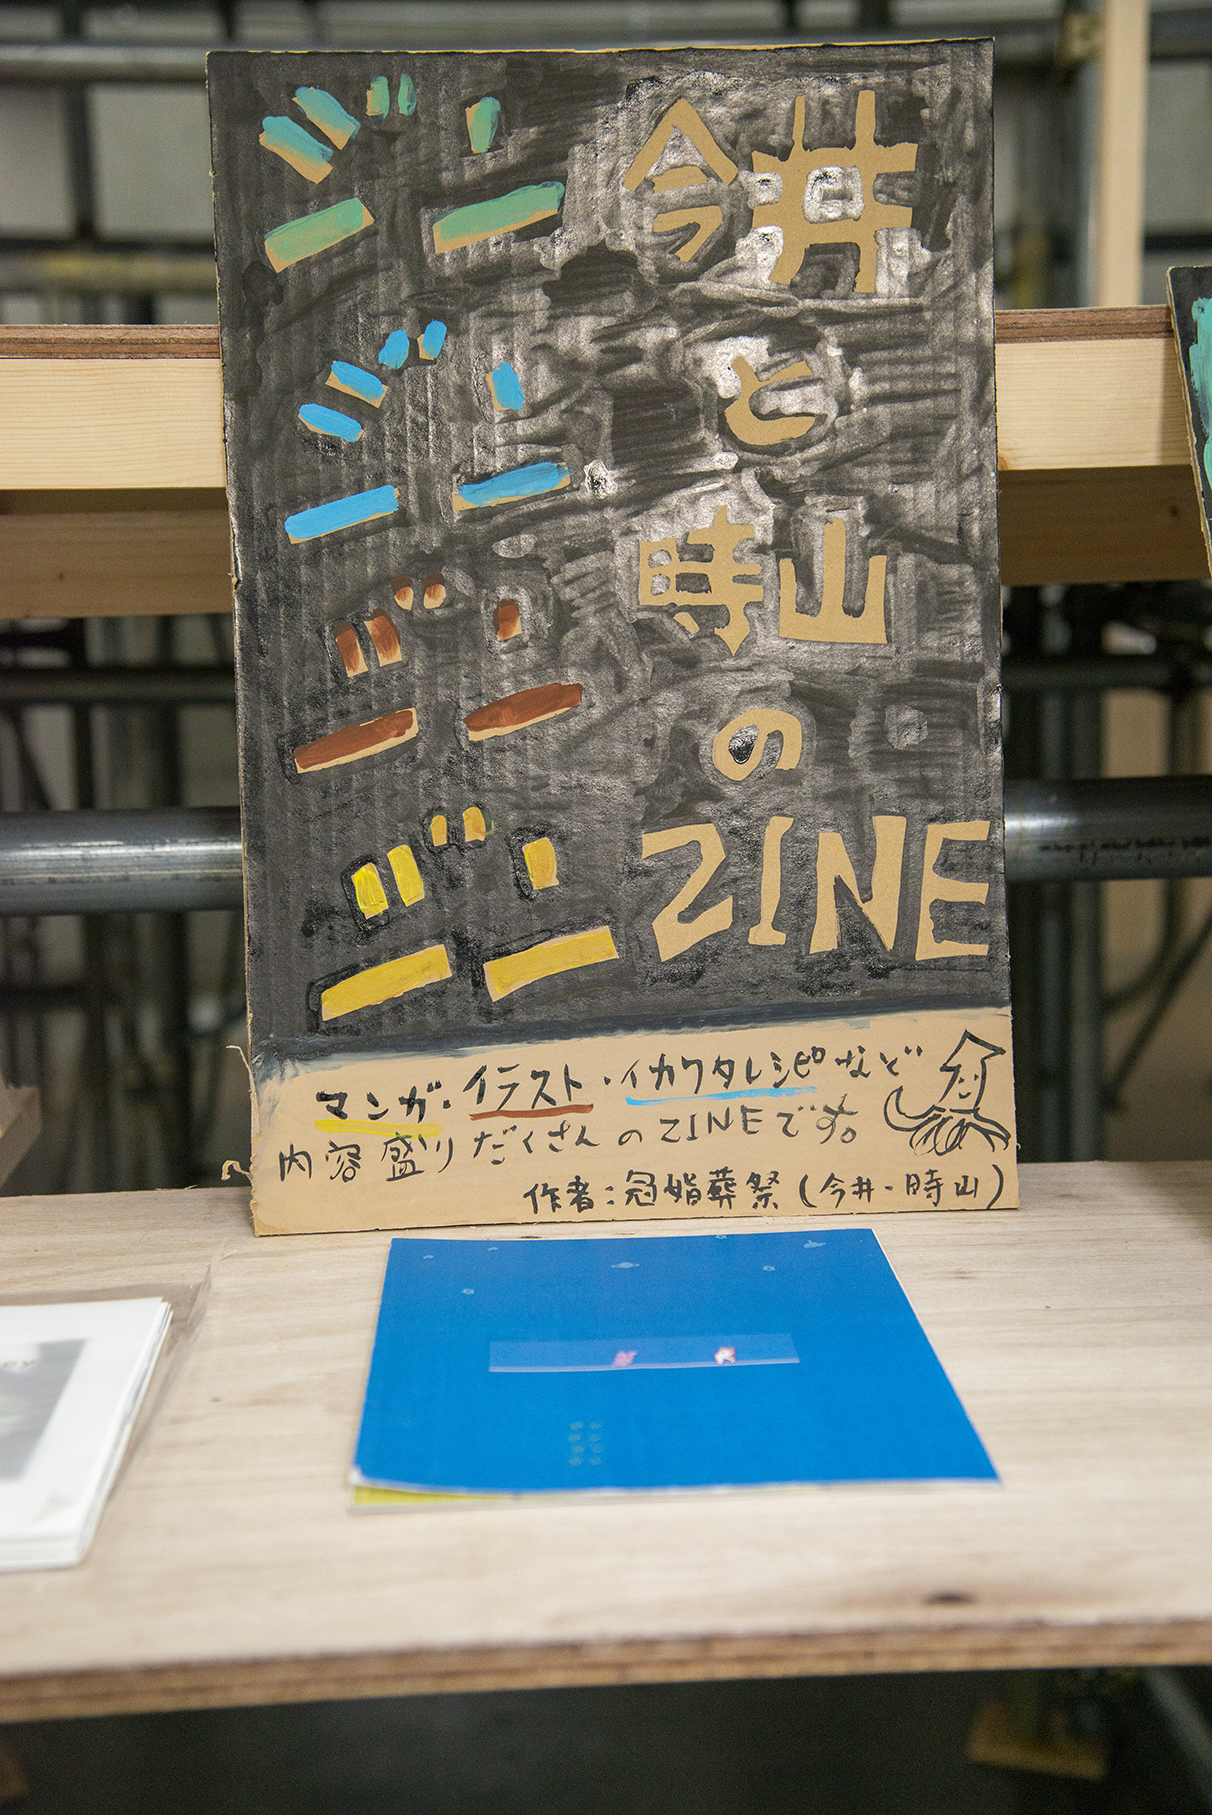 ジン
ジン
ジン
ジン
今井
と
時山
の
ZINE
マンガ・イラスト・イカワタレシピなど
内容盛りだくさんのZINEです。
作者：冠婚葬祭（今井・時山）